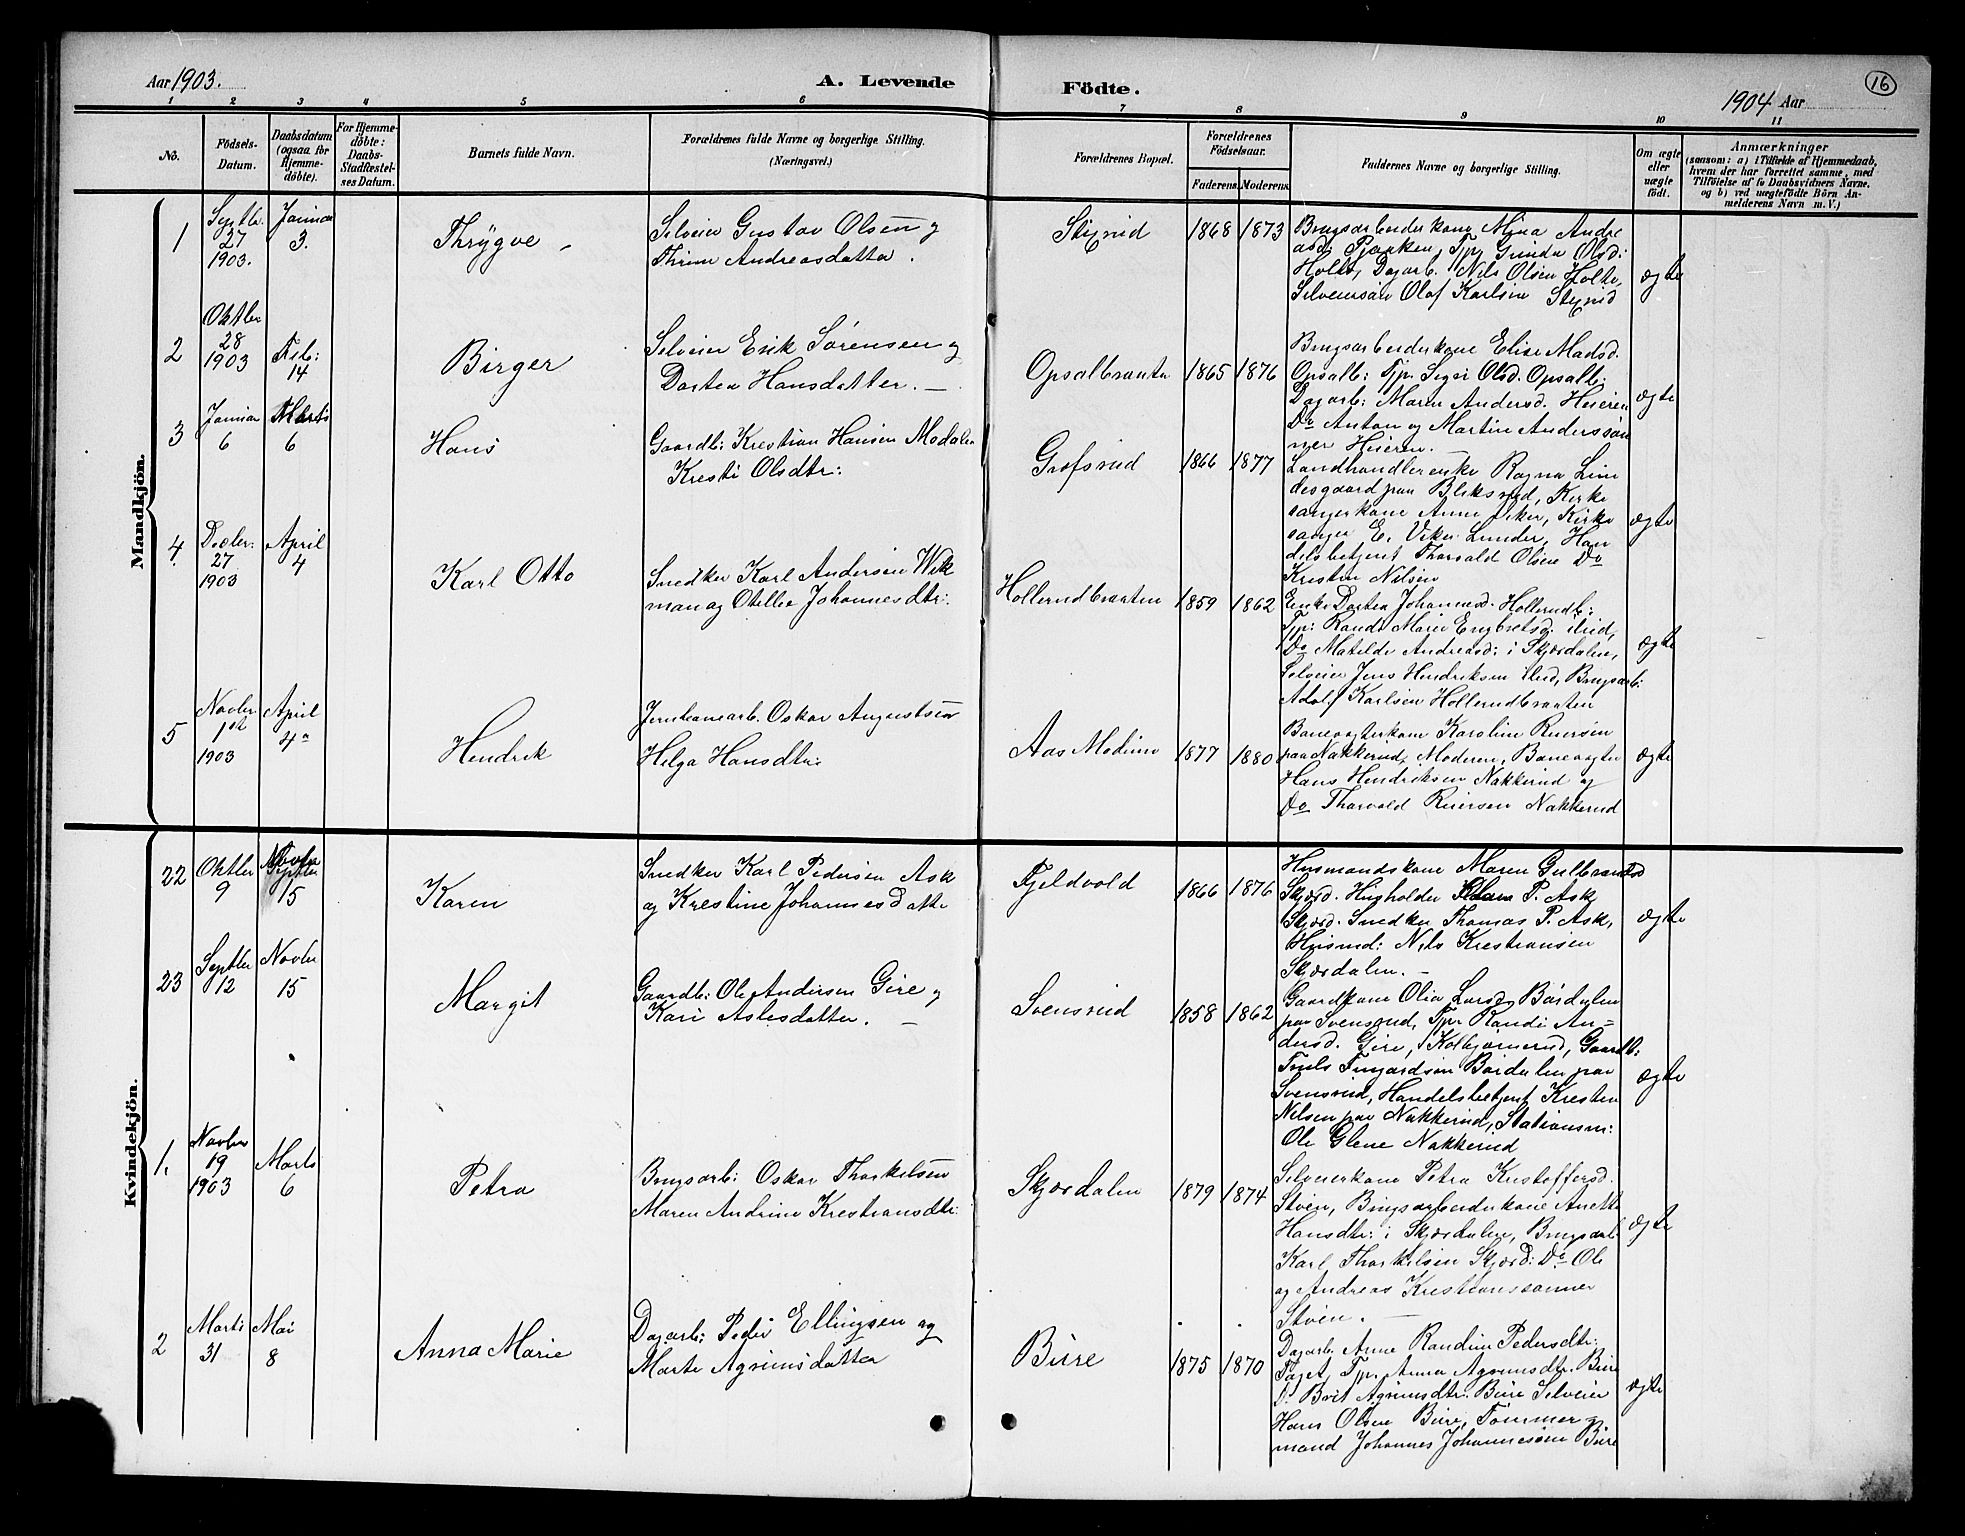 Aar 1903.
A. Levende Födte.
1904 Aar
16
1 2 3 4 5 6 7 8 9 10 11
No.
Födsels-Datum.
Daabsdatum (ogsaa for Hjemme-döbte).
For Hjemme-döbte: Daabs-Stadfæstel-ses Datum.
Barnets fulde Navn.
Forældrenes fulde Navne og borgerlige Stilling.
(Næringsvei.)
Forældrenes Bopæl.
Forældrenes Födselsaar.
Faderens. Moderens.
Faddernes Navne og borgerlige Stilling.
Om ægte eller uægte født.
Anmærkninger
(saasom: a) i Tilfælde af Hjemmedaab,
hvem der har forrettet samme, med
Tilföielse af to Daabsvidners Navne.
og b) ved uægtefödte Börn An-
melderens Navn m. V.)
Mandkjön.
1
Septbr. 27 1903.
Januar 3.
Thrygve
Selveier Gustav Olsen og
Thrine Andreasdatter.
Styxrud
1868 1873
Brugsarbeiderkone Mina Andre
asd. Pjaaken, Tjpg Gunda Olsd:
Holte, Dagarb. Nils Olsen Holte,
Selveiersön Olaf Karlsen Styxrud
ægte
2
Oktbr 28 1903
Feb: 14
Birger
Selveier Erik Sørensen og
Dortea Hansdatter. –
Opsalbraaten
1865 1876
Brugsarbeiderkone Elise Madsd.
Opsalb: Tjp. Sigri Olsd. Opsalb:
Dagarb: Maren Andersd. Heieren
Do Anton og Martin Anderssön
ner Heieren. –
ægte
3
Januar 6
Marts 6
Hans
Gaardb: Krestian Hansen Modalen
Kresti Olsdtr:
Grøfsrud
1866 1877
Landhandlerenke Ragna Lin
desgaard paa Bliksrud, Kirke
sangerkone Anne Viker, Kirke
sanger E. Viker Lunder, Han
delsbetjent Tharvald Olsen Do
Kresten Nilsen
ægte
4.
Decbr. 27 1903
April 4
Karl Otto
Snedker Karl Andersen Wik
man og Otellie Johannesdtr:
Hollerudbraaten
1859 1862
Enke Dortea Johannesd. Hollerudb:
Tjp: Randi Marie Engbretsd. ilrud,
Do Matilde Andreasd: i Skjærdalen,
Selveier Jens Hendriksen ilrud, Brugsarb:
Adolf Karlsen Hollerudbraaten
ægte
5
Novbr 1st 1903
April 4a
Hendrik
Jernbanearb. Oskar Augustsen
Helga Hansdtr:
Aas Modum
1877 1880
Banevogterkone Karoline Ruersen
paa Nakkerud, Moderen, Banevogter
Hans Hendriksen Nakkerud og
Do Tharvald Ruersen Nakkerud
ægte
Kvindekjön.
22
Oktber 9
Novbr 15
Karen
Snedker Karl Pedersen Ask
og Krestine Johannesdatter
Fjeldvold
1866 1876
Husmandskone Maren Gulbrandsd
Skjærd. Husholder P. Ask
Skjærd. Snedker Thomas P. Ask,
Husmd: Nils Krestiansen
Skjærdalen. –
ægte
23
Septber 12
Novber 15
Margit
Gaardb: Ole Andersen Gire og
Kari Aslesdatter. –
Svensrud
1858 1862
Gaardkone Olia Larsd. Bårdalen
paa Svensrud, Tjp. Randi An=
dersd. Gire, Kolbjørnsrud, Gaardb:
Truls Bårdalen paa
Svensrud, Handelsbetjent Kresten
Nilsen paa Nakkerud, Stationsm:
Ole Glene Nakkerud
ægte
1.
Novber 19 1903
Marts 6
Petra
Brugsarb: Oskar Tharkelsen
Maren Andrine Krestiansdtr:
Skjærdalen
1879 1874
Selveierkone Petra Kristoffersd.
Støen, Brugsarbeiderkone Anette
Hansdtr: i Skjærdalen, Brugsarb:
Karl Tharkelsen Skjærd: Do Ole
og Andreas Krestianssønner
Støen. –
ægte
2
Marts 31
Mai 8
Anna Marie
Dagarb: Peder Ellingsen og
Marte Agrimsdatter
Bure
1875 1870
Dagarb. Anne Randine Pedersdtr:
Faget, Tjp. Anna Agrimsdtr. Bure
Do Berit Agrimsdtr. Bure Selveier
Hans Olsen Bure, Tømmer=
mand Johannes Johannesøn Bure
ægte